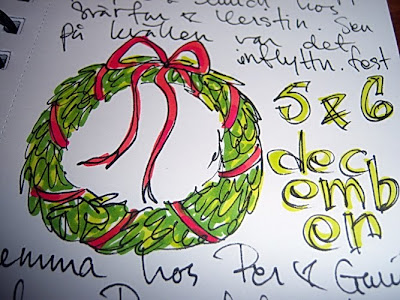 hos
& Kerstin. Sen
på kvällen var det
inflyttn.fest
5 & 6
dec
emb
er
hemma hos Per &